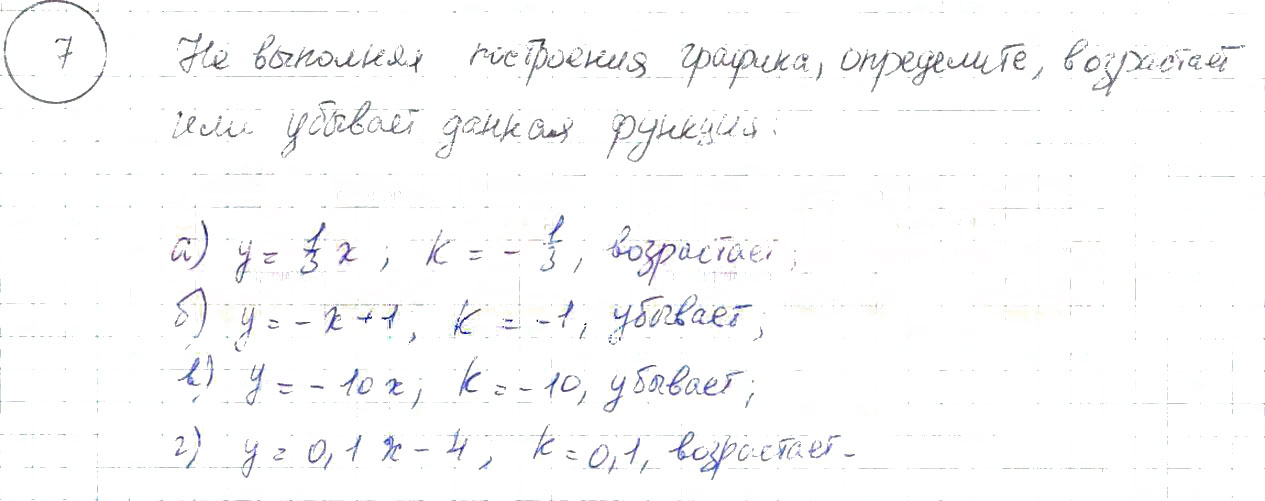 7 Не выполняя построения графика, определите, возрастает
или убывает данная функция:
а) y = 1/3 x ; k = - 1/3, возрастает;
б) y = -x+1, k = -1, убывает;
в) y = -10x; k = -10, убывает;
г) y = 0,1x - 4, k = 0,1, возрастает.